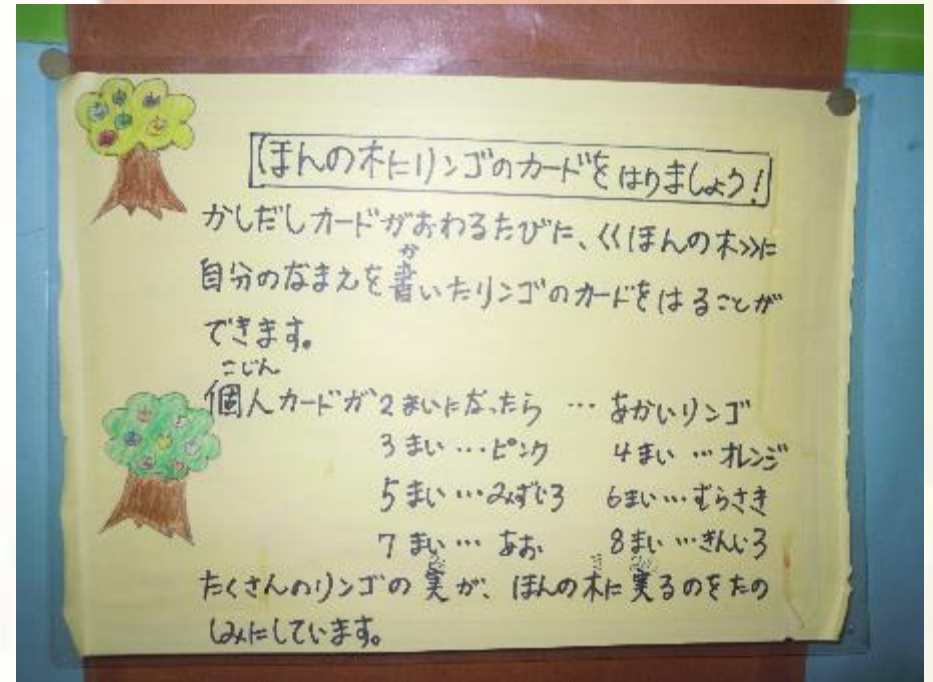 ほんの木にリンゴのカードをはりましょう!
かしだしカードがおわるたびに、《ほんの木》に
か
自分のなまえを書いたリンゴのカードをはることが
できます。
こじん
個人カードが2まいになったら … あかいリンゴ
3まい…ピンク 4まい…オレンジ
5まい…みずいろ 6まい…むらさき
7まい… あお 8まい…きんいろ
たくさんのリンゴの実が、ほんの木に実るのをたの
しみにしています。